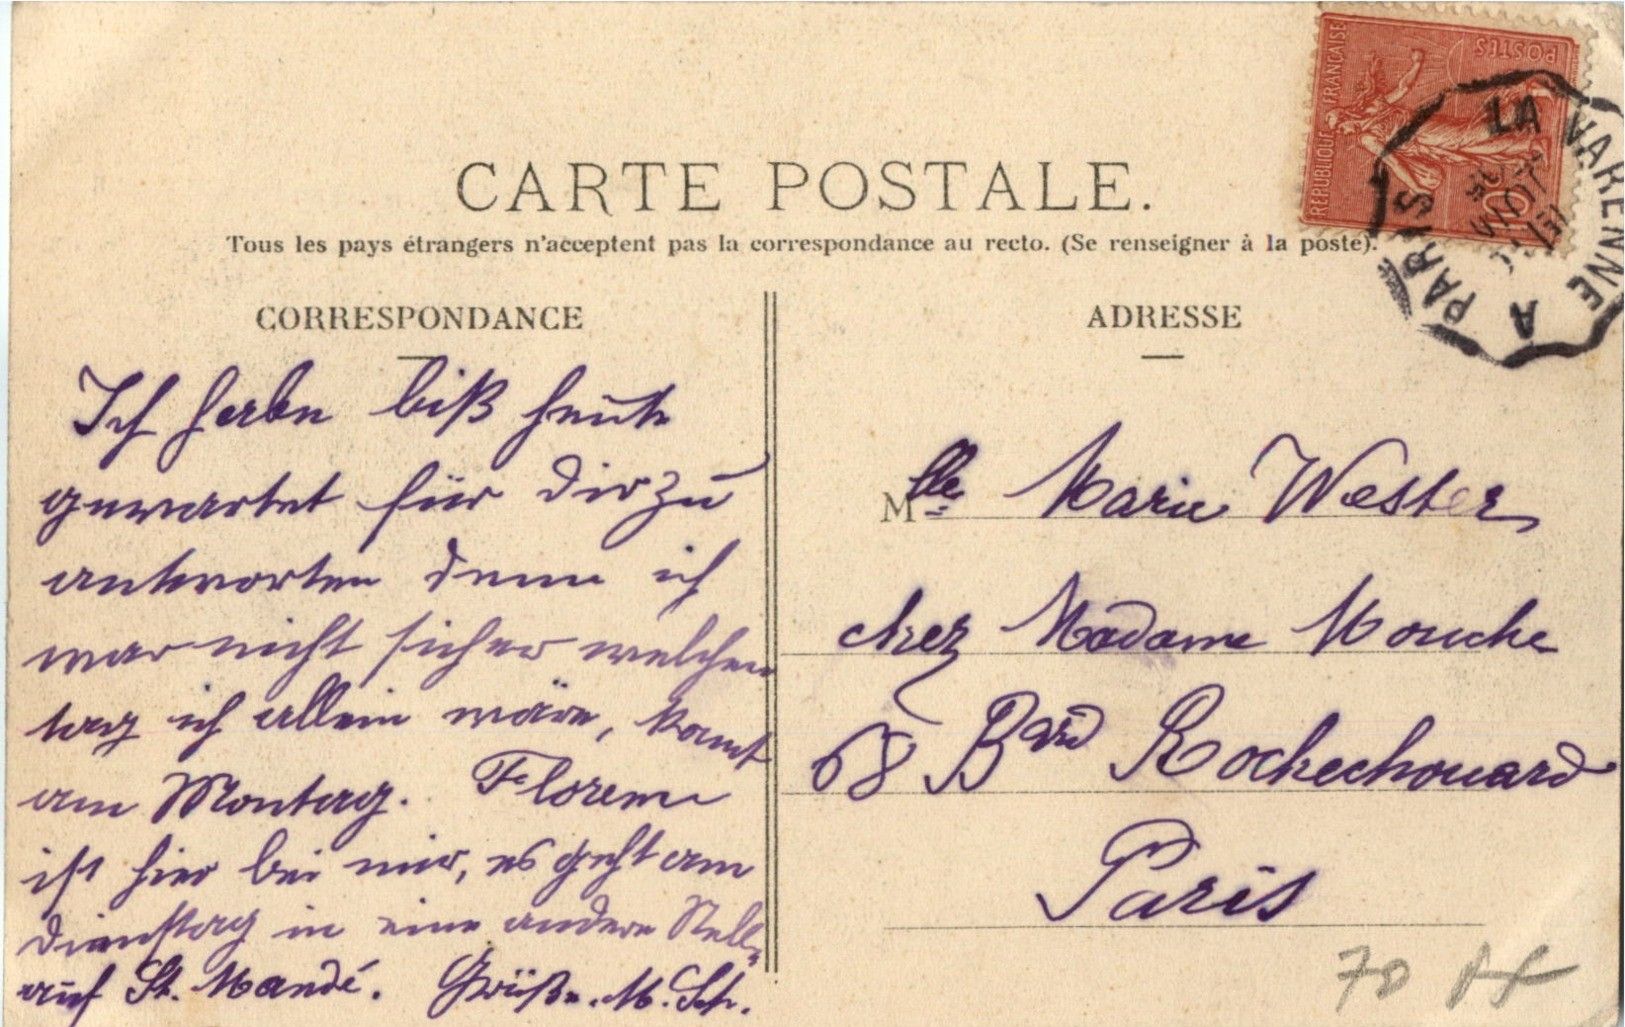 CARTE POSTALE.
Tous les pays étrangers n'acceptent pas la correspondance au recto. (Se renseigner à la poste).
CORRESPONDANCE
Ich habe biß heute
gewartet für dir zu
antworten denn ich
war nicht sicher welchen
tag ich allein wäre, kannst
am Montag. Florenn
ist hier bei mir, es geht am
Dienstag in eine andere Stelle
auf St. Mandé. Grüße. M. Sch.
ADRESSE
Mlle Marie Wester
chez Madame Mouche
68 Bard Rochechouard
Paris
70
REPUBLIQUE FRANÇAISE
POSTES
10
LA VARENNE A PARIS